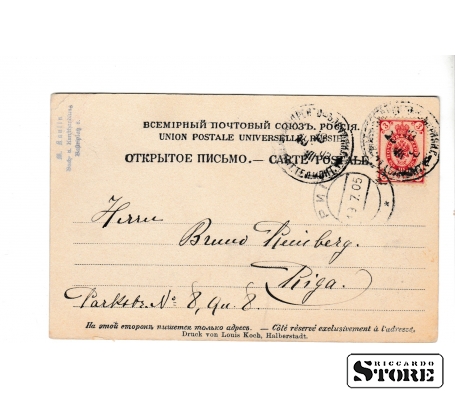 ВСЕМІРНЫЙ ПОЧТОВЫЙ СОЮЗЪ. РОССІЯ.
UNION POSTALE UNIVERSELLE. RUSSIE.
ОТКРЫТОЕ ПИСЬМО.— CARTE POSTALE.
Herrn
Bruno Reinberg.
Riga.
Parkstr. No 8, Qu. 8.
На этой сторонѣ пишется только адресъ. — Côté réservé exclusivement à l'adresse.
Druck von Louis Koch, Halberstadt.
7.05
RICCARDO
STORE